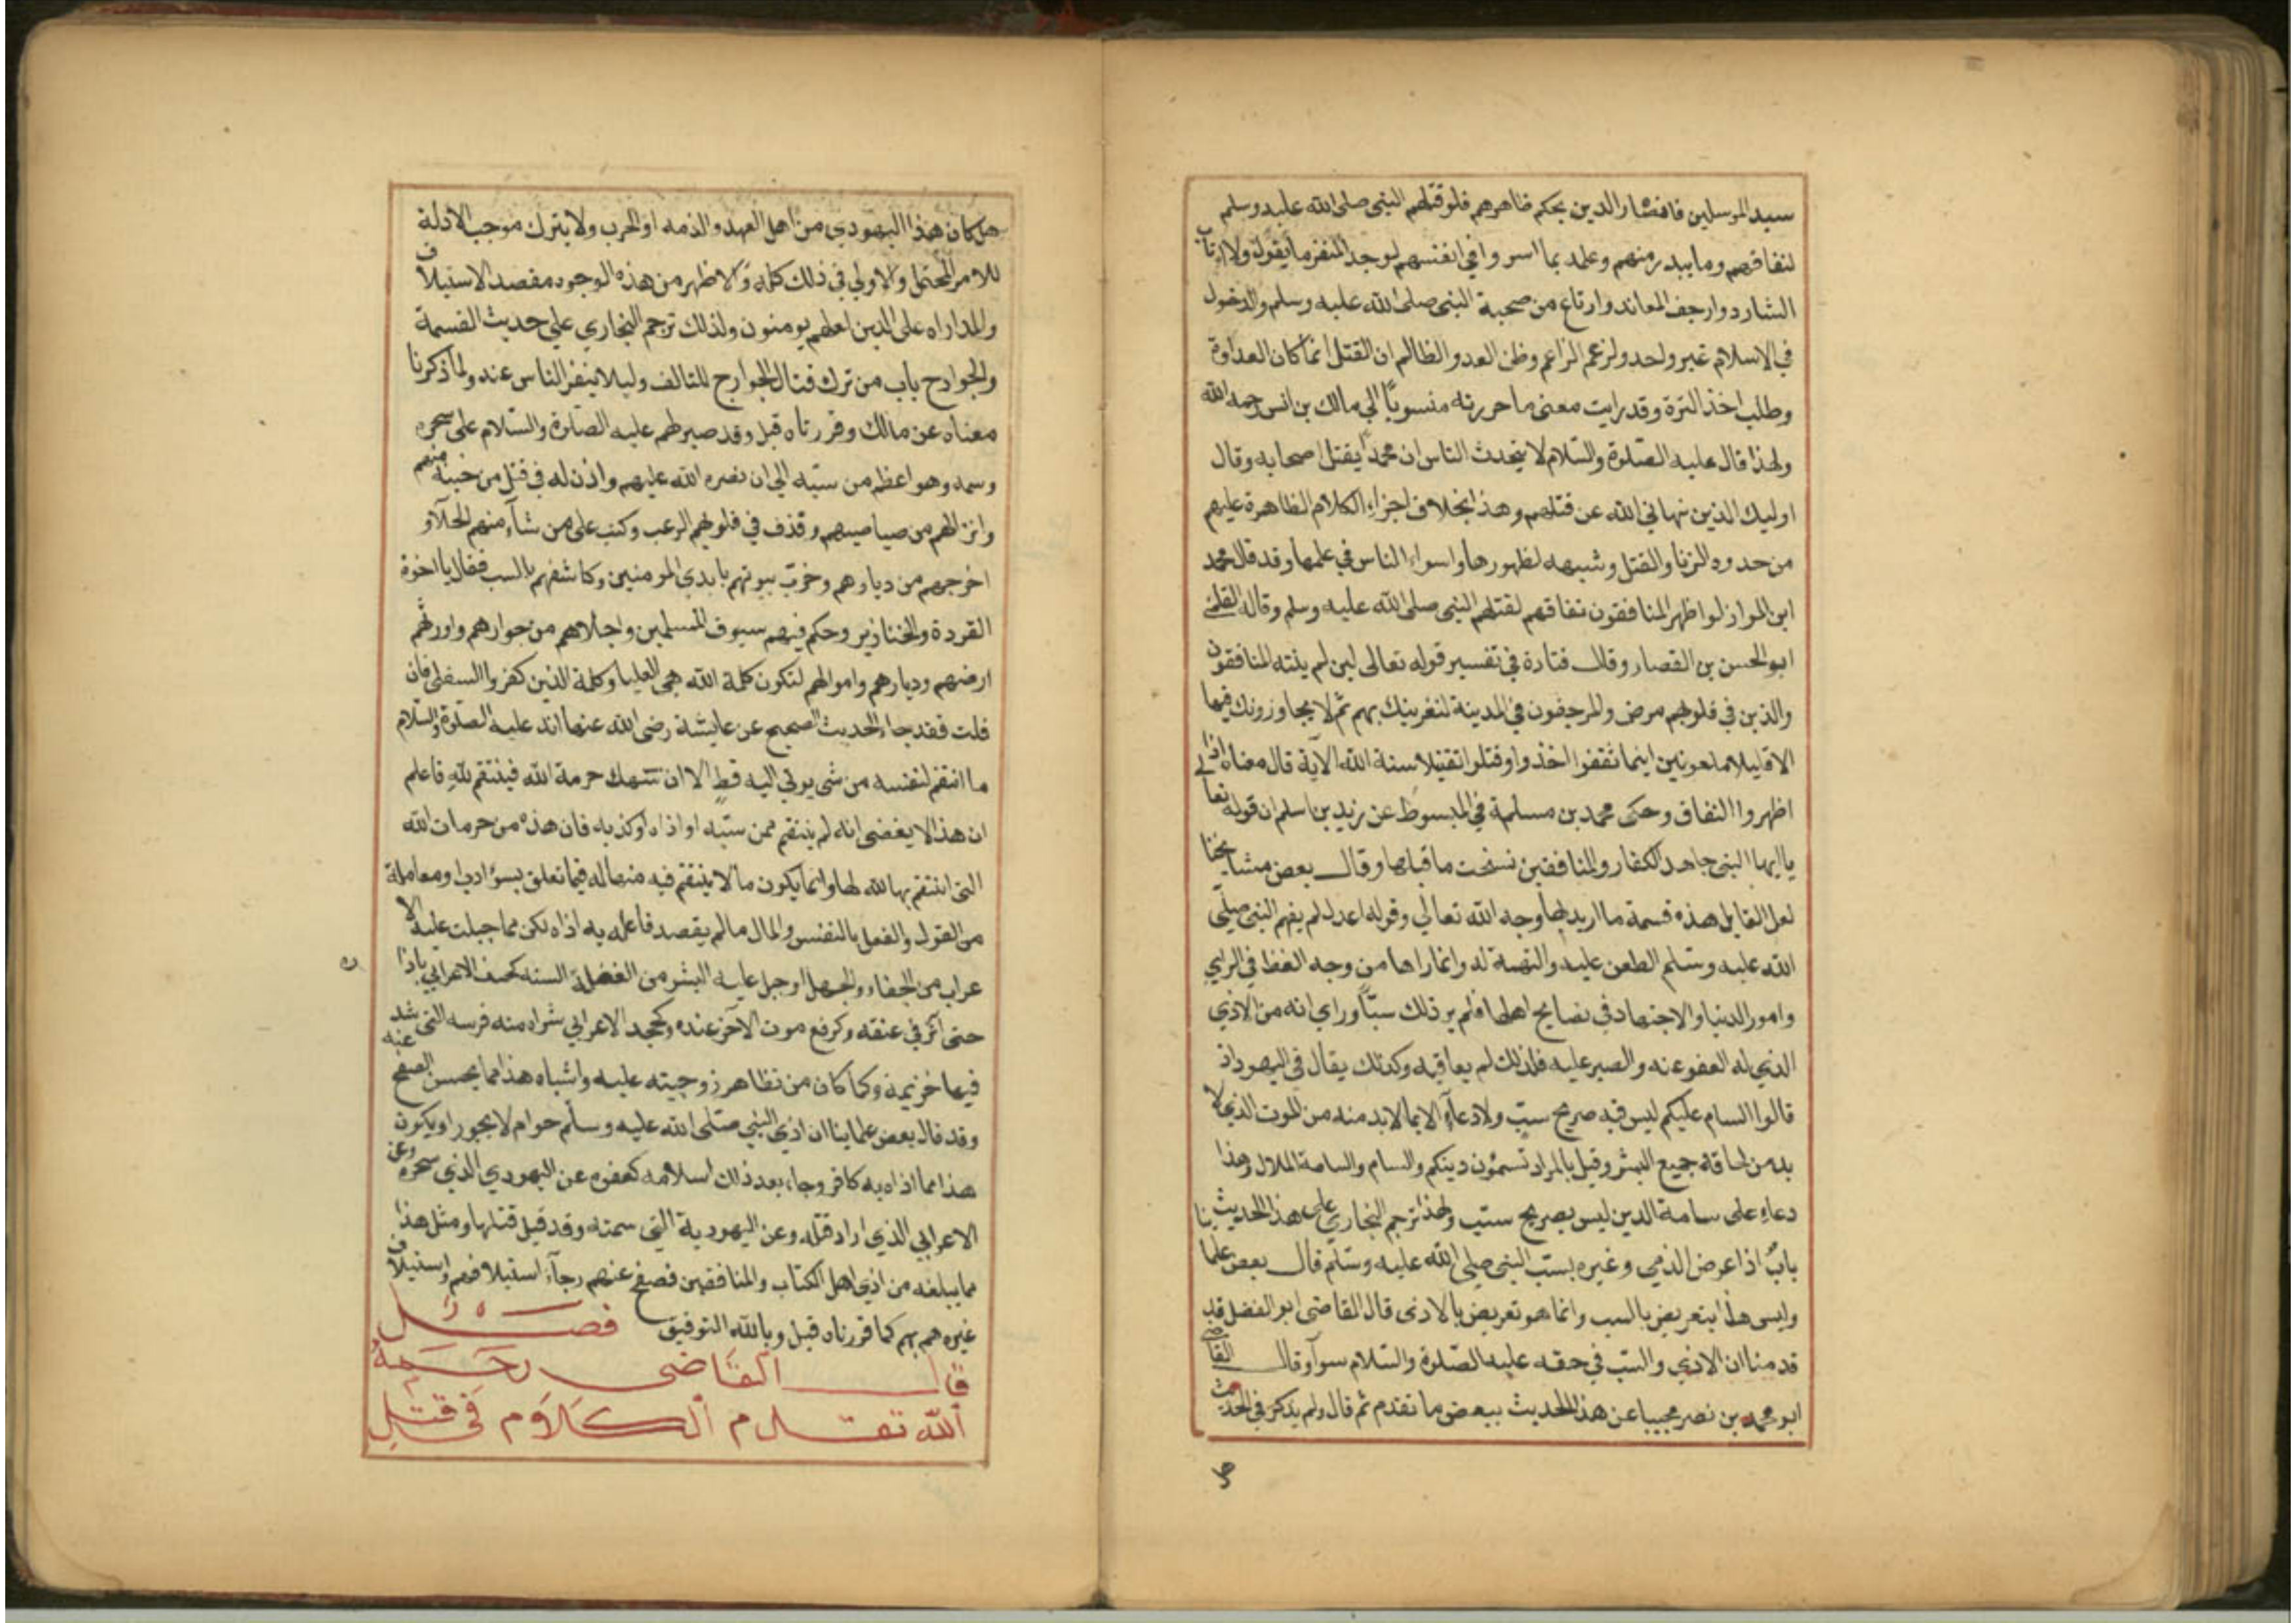 سيد المرسلين فافشار الدين بحكم ظاهرهم فلو قتلهم النبي صلى الله عليه وسلم
لنفاقهم وما يبدر منهم وعلمه بما اسروا في انفسهم لوجد المنفر ما يقول ولا ارتاب
الشارد وارجف المعاند وارتاع من صحبة النبي صلى الله عليه وسلم والدخول
في الاسلام غير واحد ولزعم الزاعم وظن العدو الظالم ان القتل انما كان العداوة
وطلب اخذ الترة وقد رايت معنى ما حررته منسوبًا الي مالك بن انس رحمه الله
ولهذا قال عليه الصلوة والسلام لا يتحدث الناس ان محمدًا يقتل اصحابه وقال
اوليك الذين نهاني الله عن قتلهم وهذا بخلاف اجزاء الكلام الظاهرة عليهم
من حدود الزنا والقتل وشبهه لظهورها واسواء الناس في علمها وقد قال محمد
ابن المواز لو اظهر المنافقون نفاقهم لقتلهم النبي صلى الله عليه وسلم وقاله القاضي
ابو الحسن بن القصار وقال قتادة في تفسير قوله تعالى لين لم ينته المنافقون
والذين في قلوبهم مرض والمرجفون في المدينة لنغرينك بهم ثم لا يجاورونك فيها
الا قليلا ملعونين اينما ثقفوا اخذوا وقتلوا تقتيلا سنة الله الآية قال معناه اذا
اظهروا النفاق وحكى محمد بن مسلمة في المبسوط عن زيد بن اسلم ان قوله تعالي
يا ايها النبي جاهد الكفار والمنافقين نسخت ما قبلها وقال بعض مشايخنا
لعل القايل هذه قسمة ما اريد بها وجه الله تعالي وقوله اعدل لم يفهم النبي صلى
الله عليه وسلم الطعن عليه والتهمة له وانما راها من وجه الغظ في الراي
وامور الدنيا والاجتهاد في نصايح اهلها فلم ير ذلك سبًّا وراي انه من الاذي
الذي له العفو عنه والصبر عليه فلذلك لم يعاقبه وكذلك يقال في اليهود اذ
قالوا السام عليكم ليس فيه صريح سبّ ولا دعاء الا بما لا بد منه من الموت الذي لا
بد من لحاقه جميع البشر وقيل بالمراد تسمئون دينكم والسام والسامة الملال وهذا
دعاء على سامة الدين ليس بصريح سب ولهذا ترجم البخاري على هذا الحديث
بابٌ اذا عرض الذمي وغيره بسبّ النبي صلى الله عليه وسلم قال بعض علماينا
وليس هذا بتعريض بالسب وانما هو تعريض بالاذى قال القاضى ابو الفضل قد
قدمنا ان الاذي والسب في حقه عليه الصلوة والسلام سوآ وقال القاضي
ابو محمد بن نصر مجيبا عن هذا الحديث ببعض ما تقدم ثم قال ولم يذكر في الحديث
هل كان هذا اليهودي من اهل العهد والذمه او الحرب ولا يترك موجب الادلة
للامر المحتمل والاولي في ذلك كله والاظهر من هذه الوجوه مقصد الاستيلاف
والمداراه على الدين لعلهم يومنون ولذلك ترجم البخاري علي حديث القسمة
والخوارج باب من ترك قتال الخوارج للتالف وليلا ينفر الناس عنه ولما ذكرنا
معناه عن مالك وقررناه قبل وقد صبر لهم عليه الصلوة والسلام على سحره
وسمه وهو اعظم من سبّه الي ان نصره الله عليهم واذن له في قتل من حينه منهم
وانزالهم من صياصيهم وقذف في قلوبهم الرعب وكتب على من شآء منهم الجلآء و
اخرجهم من ديارهم وخرّب بيوتهم بايدي المومنين وكاشفهم بالسب فقال يا اخوة
القردة والخنازير وحكم فيهم سيوف المسلمين واجلاهم من جوارهم واورثهم
ارضهم وديارهم واموالهم لتكون كلمة الله هي العليا وكلمة الذين كفروا السفلى فان
قلت فقد جاء الحديث الصحيح عن عايشة رضى الله عنها انه عليه الصلوة والسلام
ما انتقم لنفسه من شي يوتي اليه قط الا ان تنتهك حرمة الله فينتقم لله فاعلم
ان هذا لا يقضى انه لم ينتقم ممن سبّه او اذاه او كذبه فان هذه من حرمات الله
التي انتقم بها الله لها وانما يكون ما لا ينتقم فيه منها له فيما تعلق بسؤ ادب او معاملة
من القول والفعل بالنفس والمال مما لم يقصد فاعله به اذاه لكن مما جبلت عليه الا
عراب من الجفاء والجهل او جبل عليه البشر من الغفلة السنه كجبذ الاعرابي باذا
حتى اثر في عنقه وكرفع صوت الآخر عنده وكجحد الاعرابي شراه منه فرسه التي شهد
فيها خزيمة وكما كان من تظاهر زوجيته عليه واشباه هذا مما يحسن الصفح عنه
وقد قال بعض علماينا ان اذي النبي صلى الله عليه وسلم حرام لا يجوز او يكون
هذا مما اذاه به كافر وجاء بعد ذلك اسلامه كعفوه عن اليهودي الذي سحره وعن
الاعرابي الذي اراد قتله وعن اليهودية التي سمته وقد قيل قتلها ومثل هذا
مما يبلغه من اذي اهل الكتاب والمنافقين فصفح عنهم رجآء استيلافهم واستيلاف
غيرهم بهم كما قررناه قبل وبالله التوفيق فصل
قال القاضى رحمه
الله تقدم الكلام في قتل